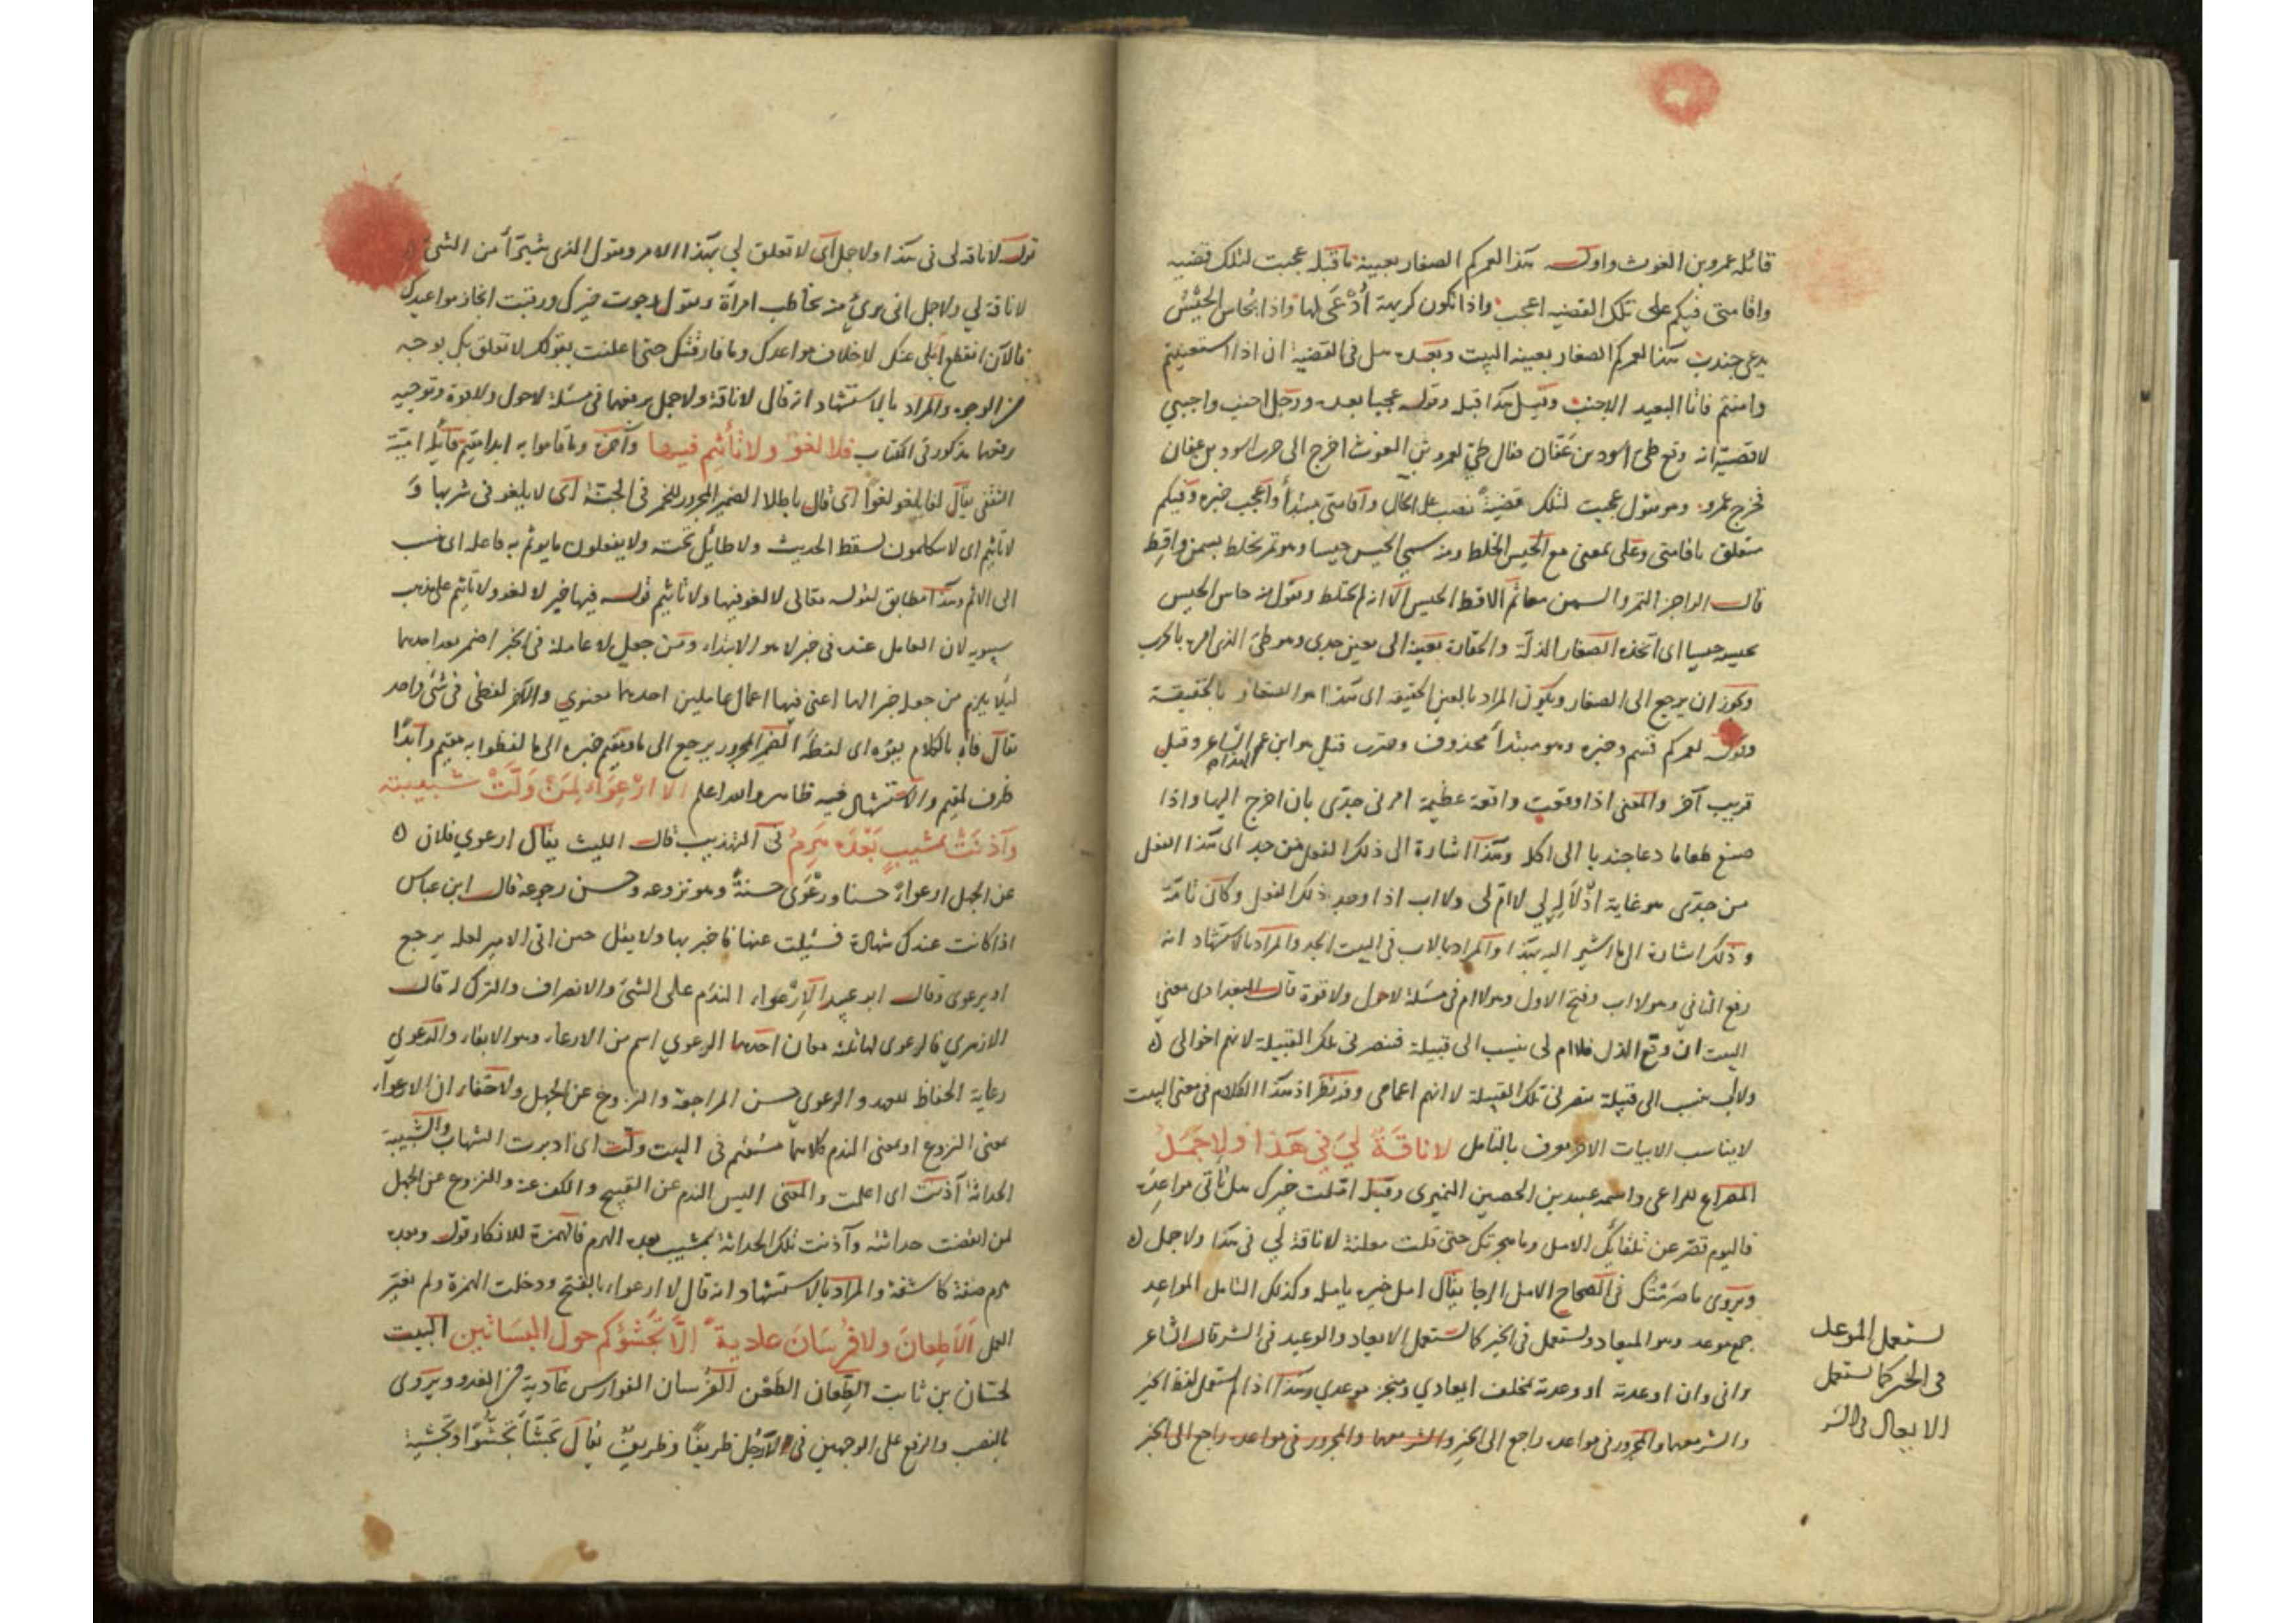 قائله عمرو بن الغوث واوله هذا لعمركم الصغار بعينه ما قبله عجبت لتلك قضية
واقامتي فيكم على تلك القضية اعجب واذا تكون كريهة أُدْعَى لها واذا يحاس الحَيْسُ
يدعى جندب هذا لعمركم الصغار بعينه البيت وبعده هل في القضية ان اذا استغنيتم
وامنتم فانا البعيد الاجنب وقيل هذا قبله وقوله عجبا بعده ورجل اجنب واجنبي
لا قصيته انه وقع طيئ اسود بن عفان فقال طيئ لعمرو بن الغوث اخرج الى حرب اسود بن عفان
فخرج عمرو وهو يقول عجبت لتلك قضيةً نصب على الحال واقامتي مبتدأ واعجب خبره وفيكم
متعلق باقامتي وعلى بمعنى مع الحيس الخلط ومنه سمي الحيس حيسا وهو تمر يخلط بسمن واقط
قال الراجز التمر والسمن معا ثم الاقط الحيس الا انه لم يختلط ويقول منه حاس الحيس
يحيسه حيسا اى اتخذه الصغار الذلة والحقارة بعينه الى بعين جدي وهو طئ الذى امره بالحرب
ويجوز ان يرجع الى الصغار ويكون المراد بالعين الحقيقة اى هذا هو الصغار بالحقيقة
وقوله لعمركم قسم وخبره وهو مبتدأ محذوف وجندب قيل هو ابن عم الشاعر وقيل
قريب آخر والمعنى اذا وقعت واقعة عظيمة امرنى جدّى بان اخرج اليها واذا
صنع طعاما دعا جندبا الى اكله وهذا اشارة الى ذلك الفعل من جده اى هذا الفعل
من جدّى هو غاية اذلاله لي لا ام لى ولا اب اذا وجد ذلك الفعل وكان تامّة
وذلك اشارة الى ما اشير اليه بهذا والمراد بالاب فى البيت الجد والمراد بالاستشهاد انه
رفع الثاني وهو لا اب وفتح الاول وهو لا ام فى مسئلة لا حول ولا قوة قال البغدادى معنى
البيت ان وقع الذل فلا ام لى ينسب الى قبيلة فنصرنى تلك القبيلة لانهم اخوالى
ولا اب ينسب الى قبيلة ينصرنى تلك القبيلة لانهم اعمامى وفيه نظر اذ هذا الكلام فى معنى البيت
لا يناسب الابيات الاخر يعرف بالتامل لا ناقَةٌ لِيَ فِي هَذَا ولا جَمَلُ
المصراع للراعى واسمه عبيد بن الحصين النميرى وقبله املت خيرك هل تأتى مواعده
فاليوم قصّر عن تلقائك الامل وما هجرتك حتى قلت معلنة لا ناقة لي في هذا ولا جمل
ويروى ما صرمتك فى الصحاح الامل الرجا يقال امل خيره يأمله وكذلك التأمل المواعد
جمع موعد وهو الميعاد ويستعمل فى الخير كما يستعمل الايعاد والوعيد فى الشر قال الشاعر
وانى وان اوعدته او وعدته لمخلف ايعادي ومنجز موعدي وهذا اذا لم يستعمل لفظ الخير
والشر معهما والمجرور فى مواعده راجع الى الخير والشر معهما والمجرور فى مواعده راجع الى الخير
يستعمل الموعد
فى الخير كما يستعمل
الايعاد فى الشر
قوله لا ناقة لى فى هذا ولا جمل اى لا تعلق لي بهذا الامر ويقول الذى يتبرّأ من الشئ
لا ناقة لي ولا جمل انى برئ منه يخاطب امرأة ويقول رجوت خيرك ورقبت انجاز مواعيدك
فالآن انقطع املى عنك لاخلاف مواعدك وما فارقتك حتى اعلنت بقولك لا تعلق بك بوجه
من الوجوه والمراد بالاستشهاد انه قال لا ناقة ولا جمل برفعهما فى مسئلة لا حول ولا قوة وتوجيه
رفعهما مذكور فى الكتاب فلا لغوٌ ولا تأثيم فيها وآخره وما فاهوا به ابدا مقيم قائله امية
الثقفى يقال لغا يلغو لغوا اى قال باطلا الضمير المجرور للخمر فى الجنة اى لا يلغو فى شربها و
لا تأثيم اى لا يتكلمون بسقط الحديث ولا طايل تحته ولا يفعلون ما يوثم به فاعله اى ينسب
الى الاثم وهذا مطابق لقوله تعالى لا لغو فيها ولا تأثيم قوله فيها خبر لا لغو ولا تأثيم على مذهب
سيبويه لان العامل عنده فى خبر لا هو الابتداء ومن جعل لا عاملة فى الخبر اضمر بعد احدهما
ليلا يلزم من جعله خبرا لهما اعنى فيها اعمال عاملين احدهما معنوي والآخر لفظى فى شئ واحد
يقال فاه بالكلام يفوه اى لفظ الضمير المجرور يرجع الى ما ومقيم خبره اى ما لفظوا به مقيم وابدًا
ظرف لمقيم والاستشهاد فيه ظاهر والله اعلم الا ارْعِوَاءَ لِمَنْ وَلَّتْ شبيبته
وَآذَنَتْ بمشيبٍ بَعْدَه هَرِمُ فى التهذيب قال الليث يقال ارعوى فلان
عن الجهل ارعواءً حسنا ورَعْوَى حسنةً وهو نزوعه وحسن رجوعه قال ابن عباس
اذا كانت عندك شهادة فسئلت عنها فاخبر بها ولا يقل حين اتى الامير لعله يرجع
او يرعوى وقال ابو عبيد الارْعِواء الندم على الشئ والانصراف والترك له قال
الازهري فالرعوى لها ثلثة معان احدها الرعوى اسم من الارعاء وهو الابقاء والرعوي
رعاية الحفاظ للعهد والرعوى حسن المراجعة والنزوع عن الجهل ولا خفاء ان الارعواء
بمعنى النزوع او بمعنى الندم كلاهما مستقيم فى البيت ولّت اى ادبرت الشباب والشبيبة
الحداثة آذنت اى اعلمت والمعنى اليس الندم عن القبيح والكف عنه والنزوع عن الجهل
لمن انقضت حداثته وآذنت تلك الحداثة بمشيب بعده الهرم فالهمزة للانكار قوله وبعده
هرم صفة كاشفة والمراد بالاستشهاد انه قال لا ارعواء بالفتح ودخلت الهمزة ولم يغير
العمل ألَا طِعانَ ولا فُرْسَانَ عادِيةً إلَّا تَجَشُّؤكم حول التنانير البيت
لحسّان بن ثابت الطِّعان الطَعْن الفرسان الفوارس عادية من العدو ويروى
بالنصب والرفع على الوجهين فى لا رجل ظريفًا وظريفٌ يقال تجَشّأ تَجَشُّؤًا وتجشية